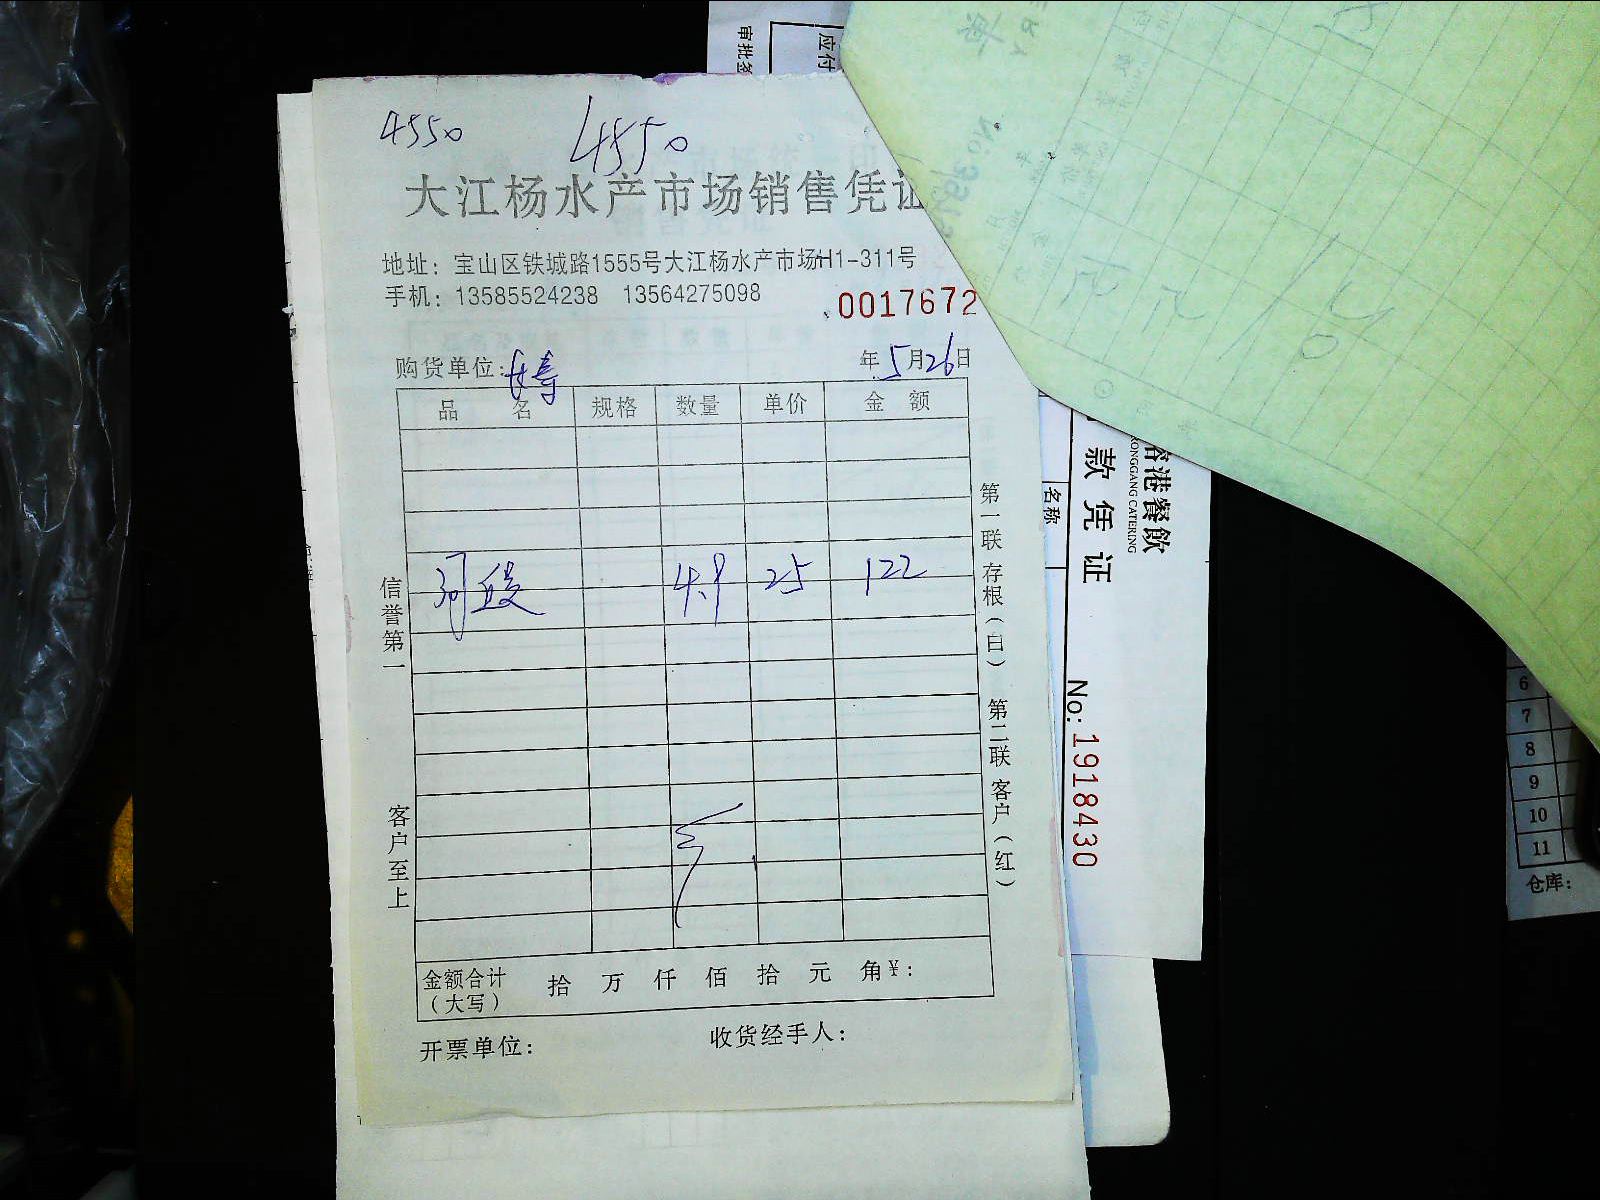 4550 4550
大江杨水产市场销售凭证
地址：宝山区铁城路1555号大江杨水产市场H1-311号
手机：13585524238 13564275098
0017672
购货单位：长寿 年5月26日
品名 规格 数量 单价 金额
河 4.9 25 122
信誉第一
客户至上
第一联 存根（白） 第二联 客户（红）
金额合计（大写） 拾 万 仟 佰 拾 元 角 ¥：
开票单位： 收货经手人：
应付
名称
款凭证
港餐飲
RONGGANG CATERING
No: 1918430
6
7
8
9
10
11
仓库：